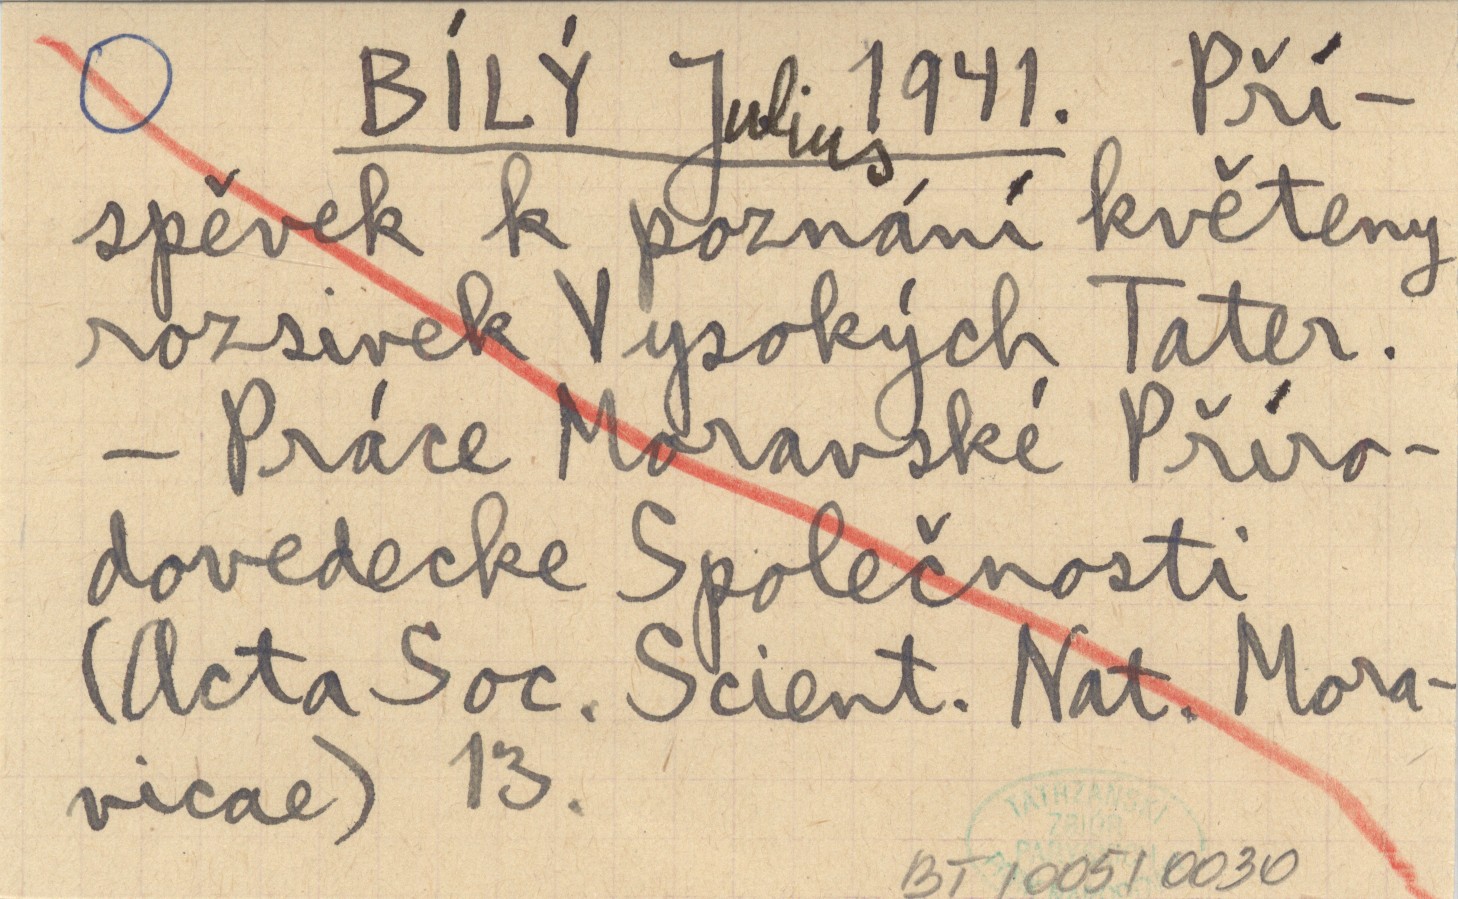 BÍLÝ Julius 1941. Pří-
spěvek k poznání květeny
rozsivek Vysokých Tater.
— Práce Moravské Příro-
dovedecke Společnosti
(Acta Soc. Scient. Nat. Mora-
vicae) 13.
TATRZAŃSKI
BT / 005 / 0030